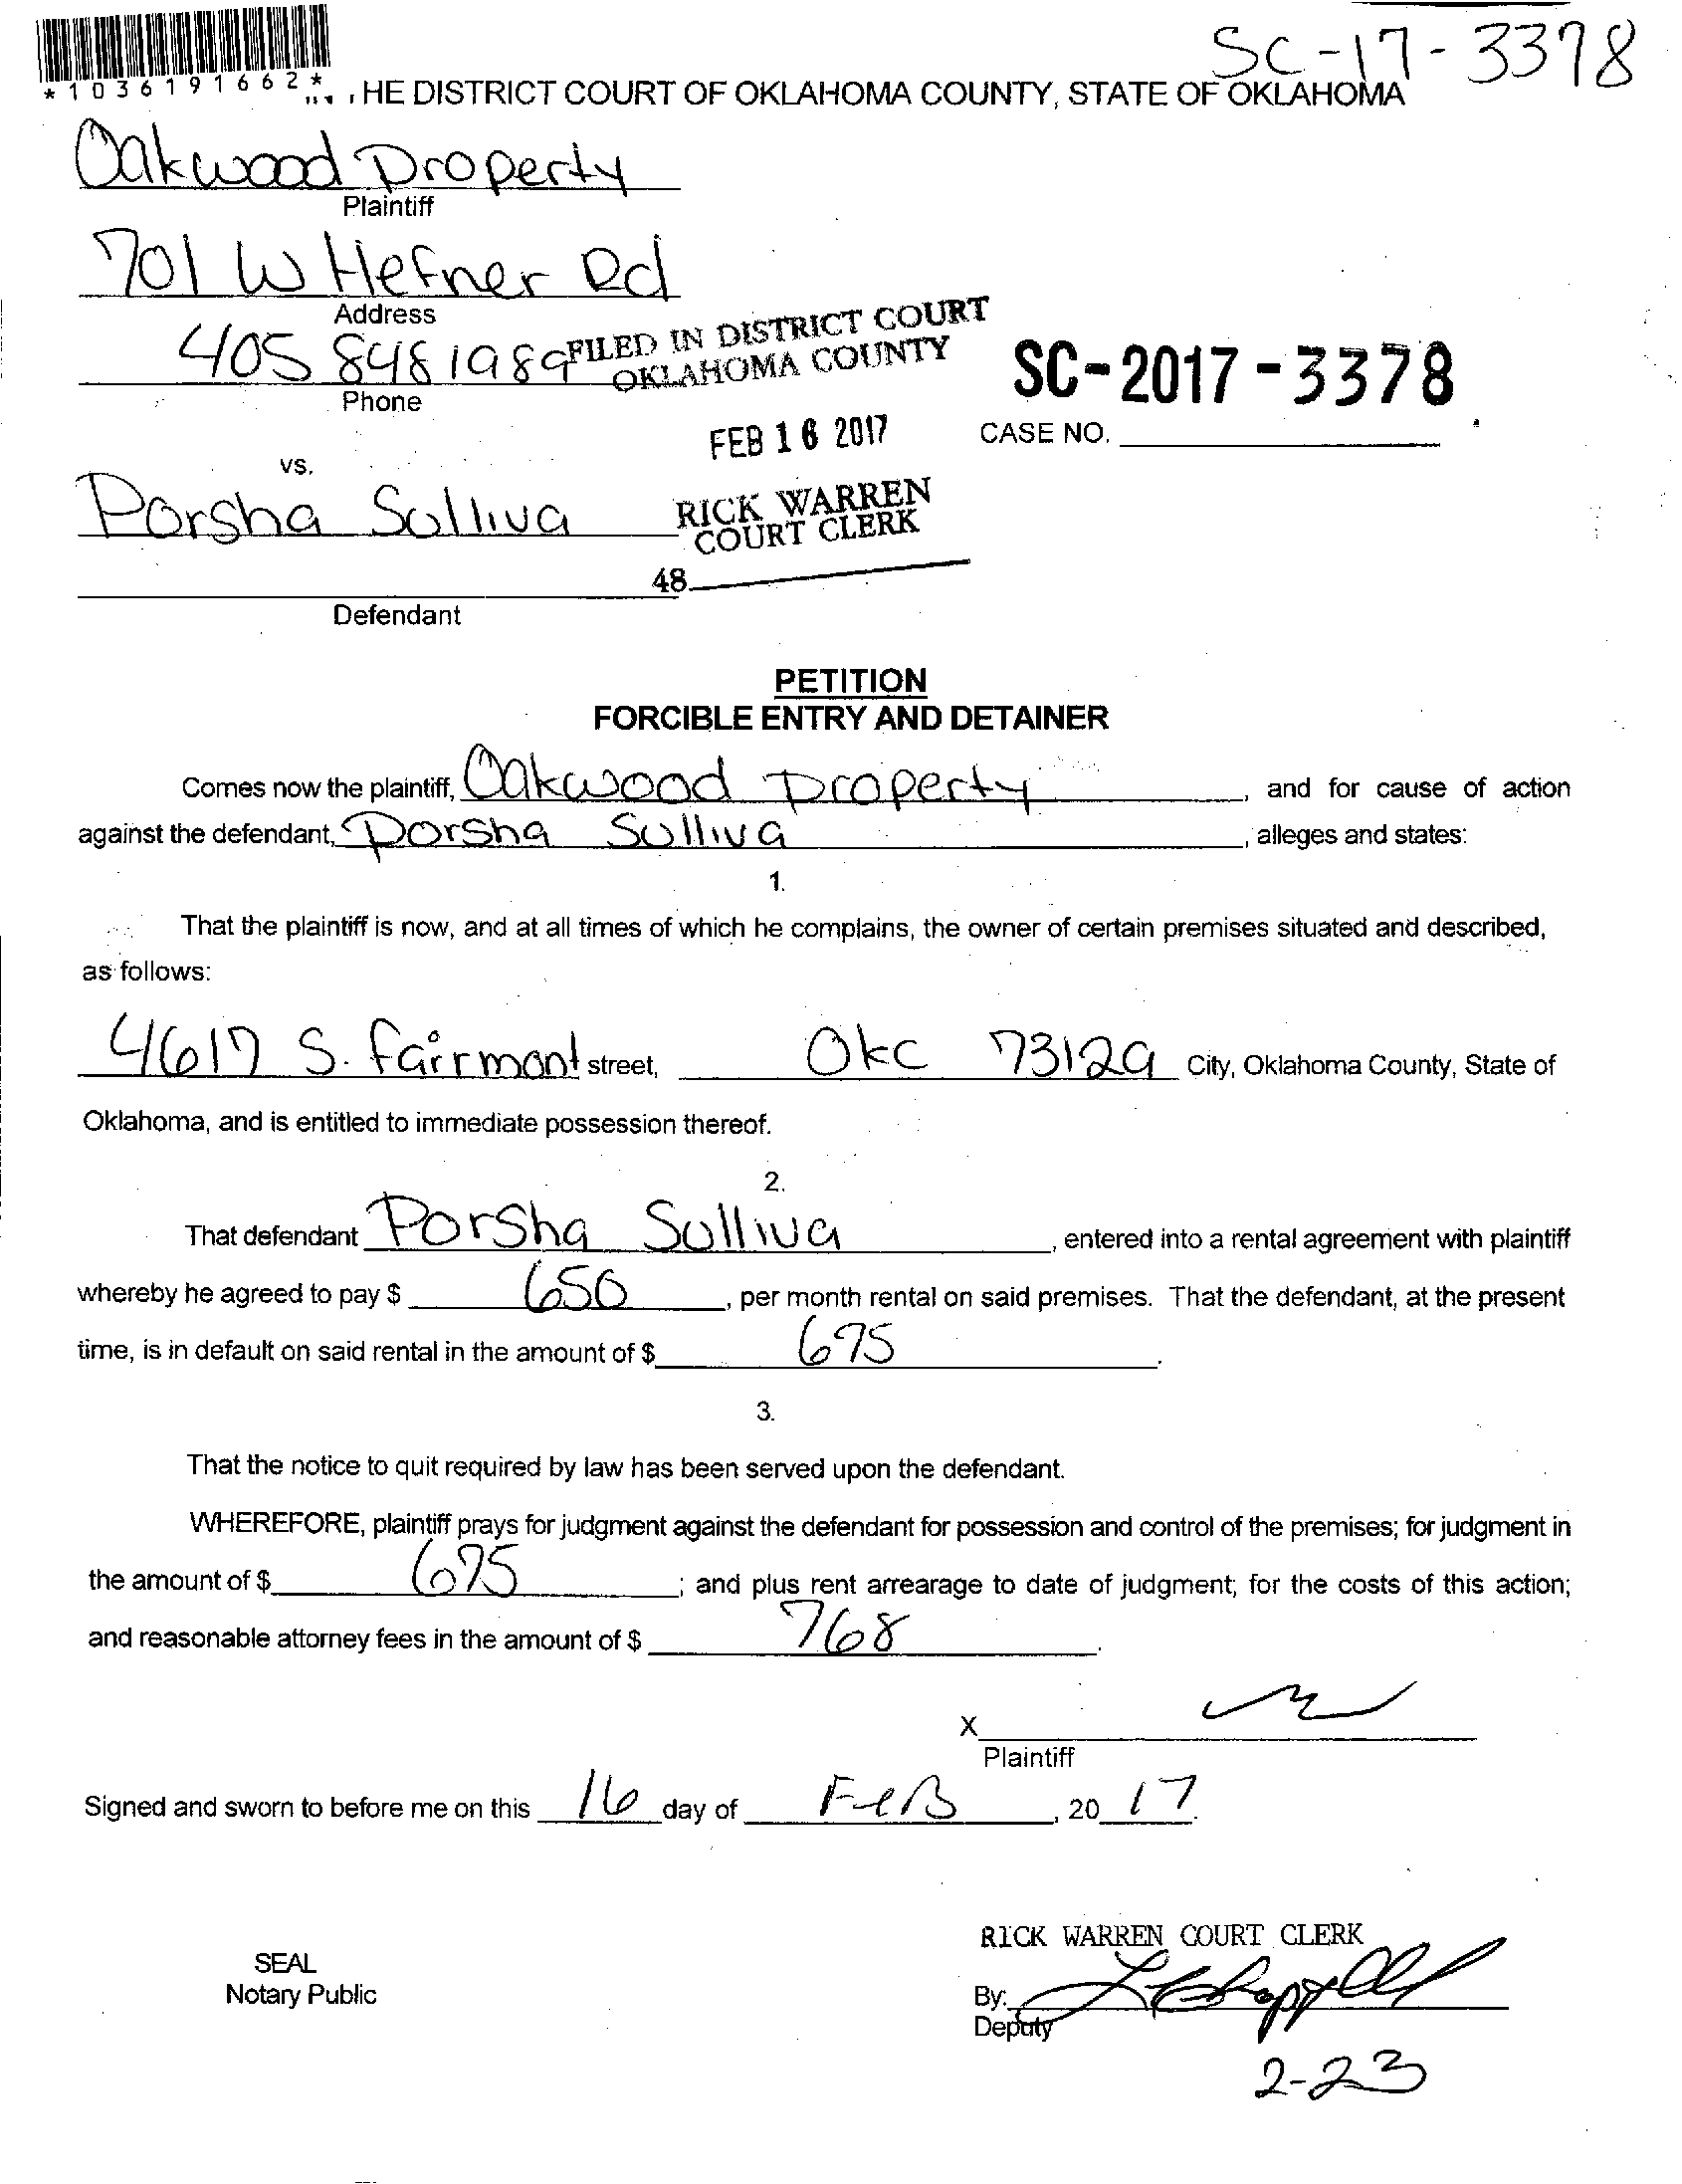 SC-17-3378
*1036191662*
HE DISTRICT COURT OF OKLAHOMA COUNTY, STATE OF OKLAHOMA
Oakwood Property
Plaintiff
701 W Hefner Rd
Address
405 848 1989
Phone
FILED IN DISTRICT COURT
OKLAHOMA COUNTY
FEB 16 2017
RICK WARREN
COURT CLERK
48
SC-2017-3378
CASE NO.
vs.
Porsha Sulliva
Defendant
PETITION
FORCIBLE ENTRY AND DETAINER
Comes now the plaintiff, Oakwood Property, and for cause of action
against the defendant, Porsha Sulliva, alleges and states:
1.
That the plaintiff is now, and at all times of which he complains, the owner of certain premises situated and described,
as follows:
4617 S. fairmont street, Okc 73129 City, Oklahoma County, State of
Oklahoma, and is entitled to immediate possession thereof.
2.
That defendant Porsha Sulliva, entered into a rental agreement with plaintiff
whereby he agreed to pay $ 650, per month rental on said premises. That the defendant, at the present
time, is in default on said rental in the amount of $ 675.
3.
That the notice to quit required by law has been served upon the defendant.
WHEREFORE, plaintiff prays for judgment against the defendant for possession and control of the premises; for judgment in
the amount of $ 675; and plus rent arrearage to date of judgment; for the costs of this action;
and reasonable attorney fees in the amount of $ 768.
X
Plaintiff
Signed and sworn to before me on this 16 day of FeB, 20 17.
RICK WARREN COURT CLERK
SEAL
Notary Public
By:
Deputy
2-23